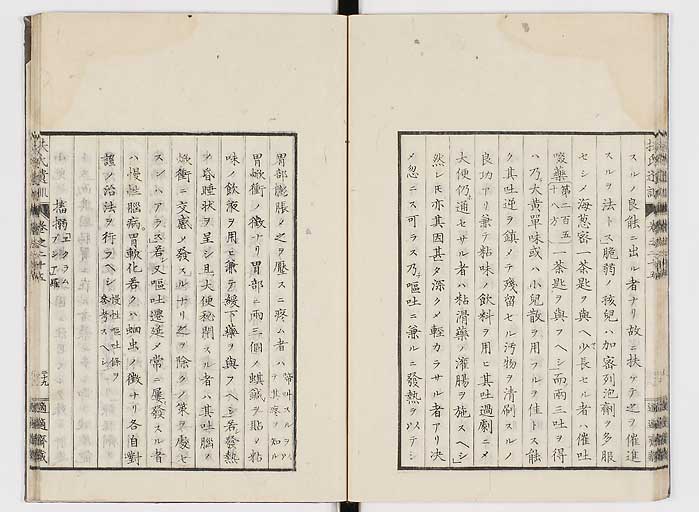 スルノ良能ニ出ル者ナリ故ニ扶ケテ之ヲ催進
スルヲ法トス脆弱ノ孩兒ハ加密列泡劑ヲ多服
セシメ海葱蜜一茶匙ヲ與ヘ少長セル者ハ催吐
啜藥第二百五十八方一茶匙ヲ與フヘシ而兩三吐ヲ得
ハ乃大黄單味或ハ小兒散ヲ用フルヲ佳トス能
ク其吐逆ヲ鎮メテ残留セル汚物ヲ清刷スルノ
良功アリ兼テ粘味ノ飲料ヲ用ヒ其吐過劇ニメ
大便仍通セサル者ハ粘滑藥ノ灌腸ヲ施スヘシ
然レ𪜈亦其因甚タ深ク乄輕カラサル者アリ决
メ忽ニス可ラス乃嘔吐ニ兼ルニ發熱ヲ以テシ
胃部膨脹メ之ヲ壓スニ疼ム者ハ
胃焮衝ノ徴ナリ胃部ニ兩三個ノ蜞鍼ヲ貼メ粘
味ノ飲液ヲ用ヒ兼テ緩下藥ヲ與フヘシ若發熱
シ昏睡状ヲ呈シ且大便秘閉スル者ハ其吐腦ノ
焮衝ニ交感メ發スルナリ之ヲ除クノ策ヲ處セ
スンハアラス若シ又嘔吐遷延メ常ニ屢發スル者
ハ慢性腦病胃軟化若クハ蛔虫ノ徴ナリ各自對
證ノ治法ヲ行フヘシ慢性嘔吐條ヲ參考スヘシ
搐搦
扶氏遺訓
卷之二十五
二十九
適適齋藏